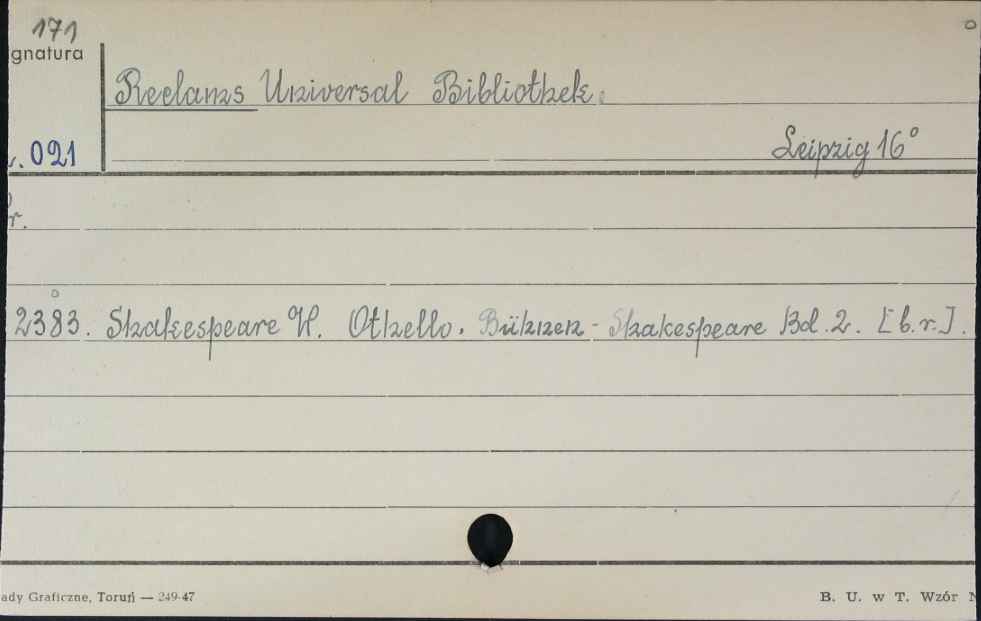 171
gnatura
Reclams Universal Bibliothek.
. 021
Leipzig 16°
r.
2383. Shakespeare W. Othello. Bühnen-Shakespeare Bd. 2. [b.r.].
ady Graficzne, Toruń — 249-47
B. U. w T. Wzór N